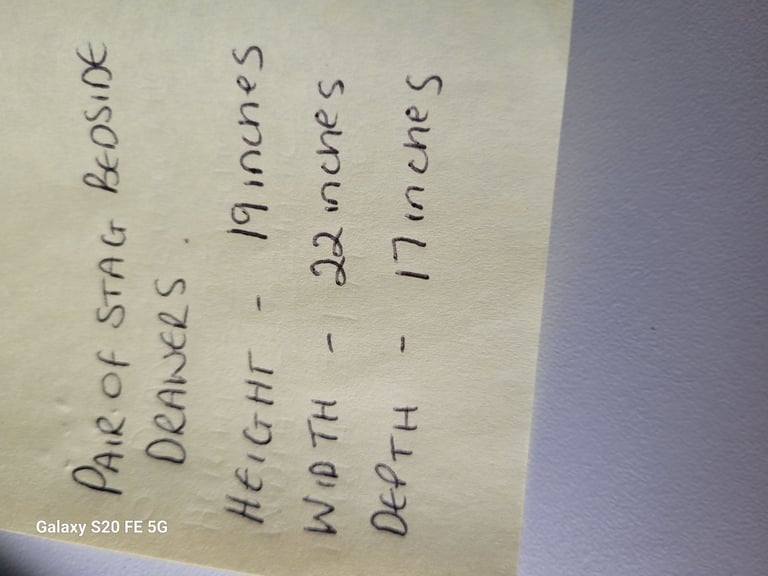 PAIR OF STAG BEDSIDE
DRAWERS.
HEIGHT - 19 inches
WIDTH - 22 inches
DEPTH - 17 inches
Galaxy S20 FE 5G